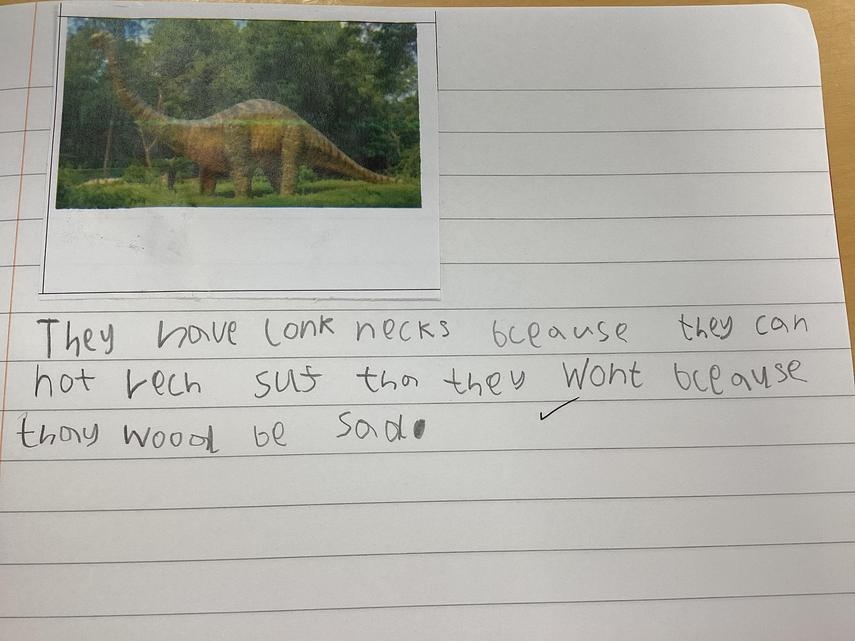 They have lonk necks bceause they can
not rech suf tha they wont bceause
thay woood be sad.